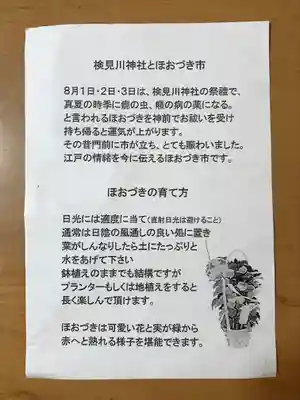 検見川神社とほおづき市
8月1日・2日・3日は、検見川神社の祭禮で、
真夏の時季に癇の虫、癪の病の薬になる。
と言われるほおづきを神前でお祓いを受け
持ち帰ると運気が上がります。
その昔門前に市が立ち、とても賑わいました。
江戸の情緒を今に伝えるほおづき市です。
ほおづきの育て方
日光には適度に当て(直射日光は避けること)
通常は日陰の風通しの良い処に置き
葉がしんなりしたら土にたっぷりと
水をあげて下さい
鉢植えのままでも結構ですが
プランターもしくは地植えをすると
長く楽しんで頂けます。
ほおづきは可愛い花と実が緑から
赤へと熟れる様子を堪能できます。